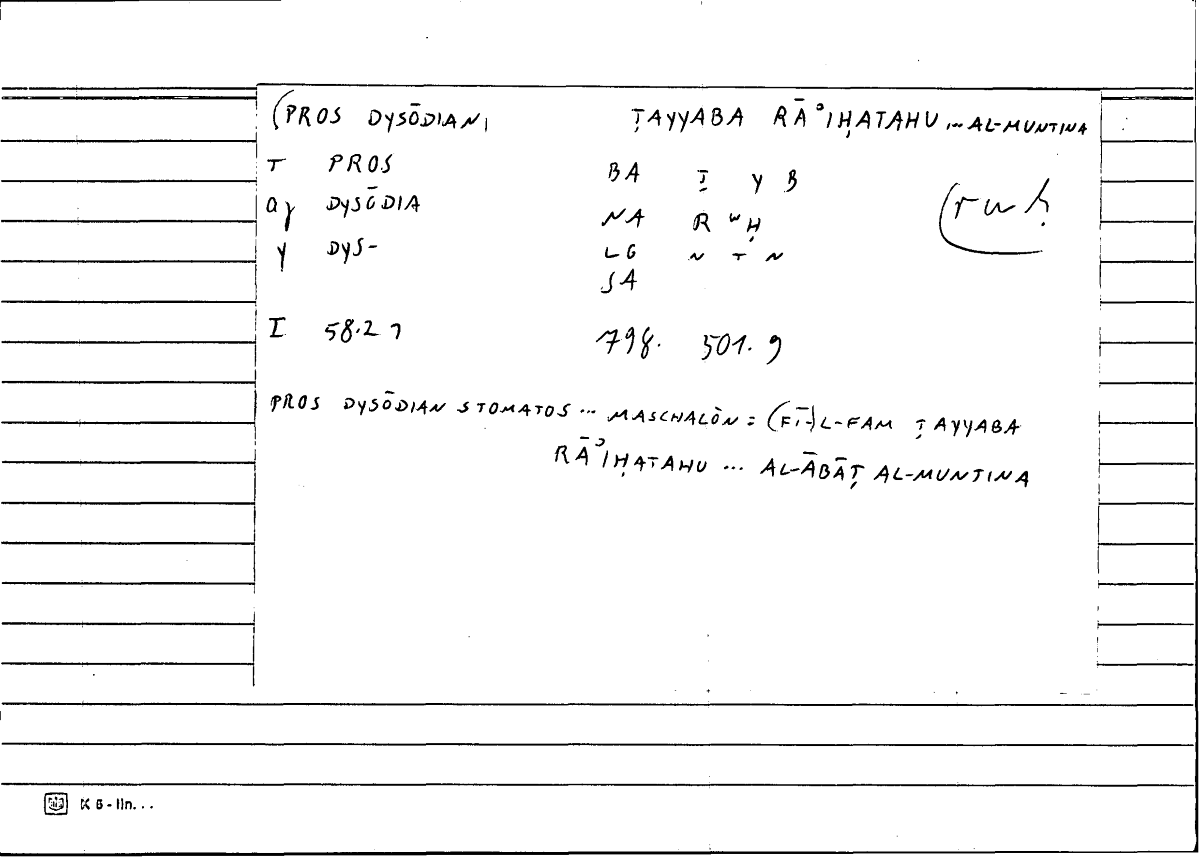 (PROS DYSŌDIAN, ṬAYYABA RĀʾIḤATAHU ... AL-MUNTINA
T PROS BA Ṭ Y B
aγ DYSŌDIA NA R W Ḥ (rwḥ
y DYS- LG N T N
SA
I 58.21 798. 501.9
PROS DYSŌDIAN STOMATOS ... MASCHALŌN = (FĪ-)L-FAM ṬAYYABA
RĀʾIḤATAHU ... AL-ĀBĀṬ AL-MUNTINA
K 6 - lin...